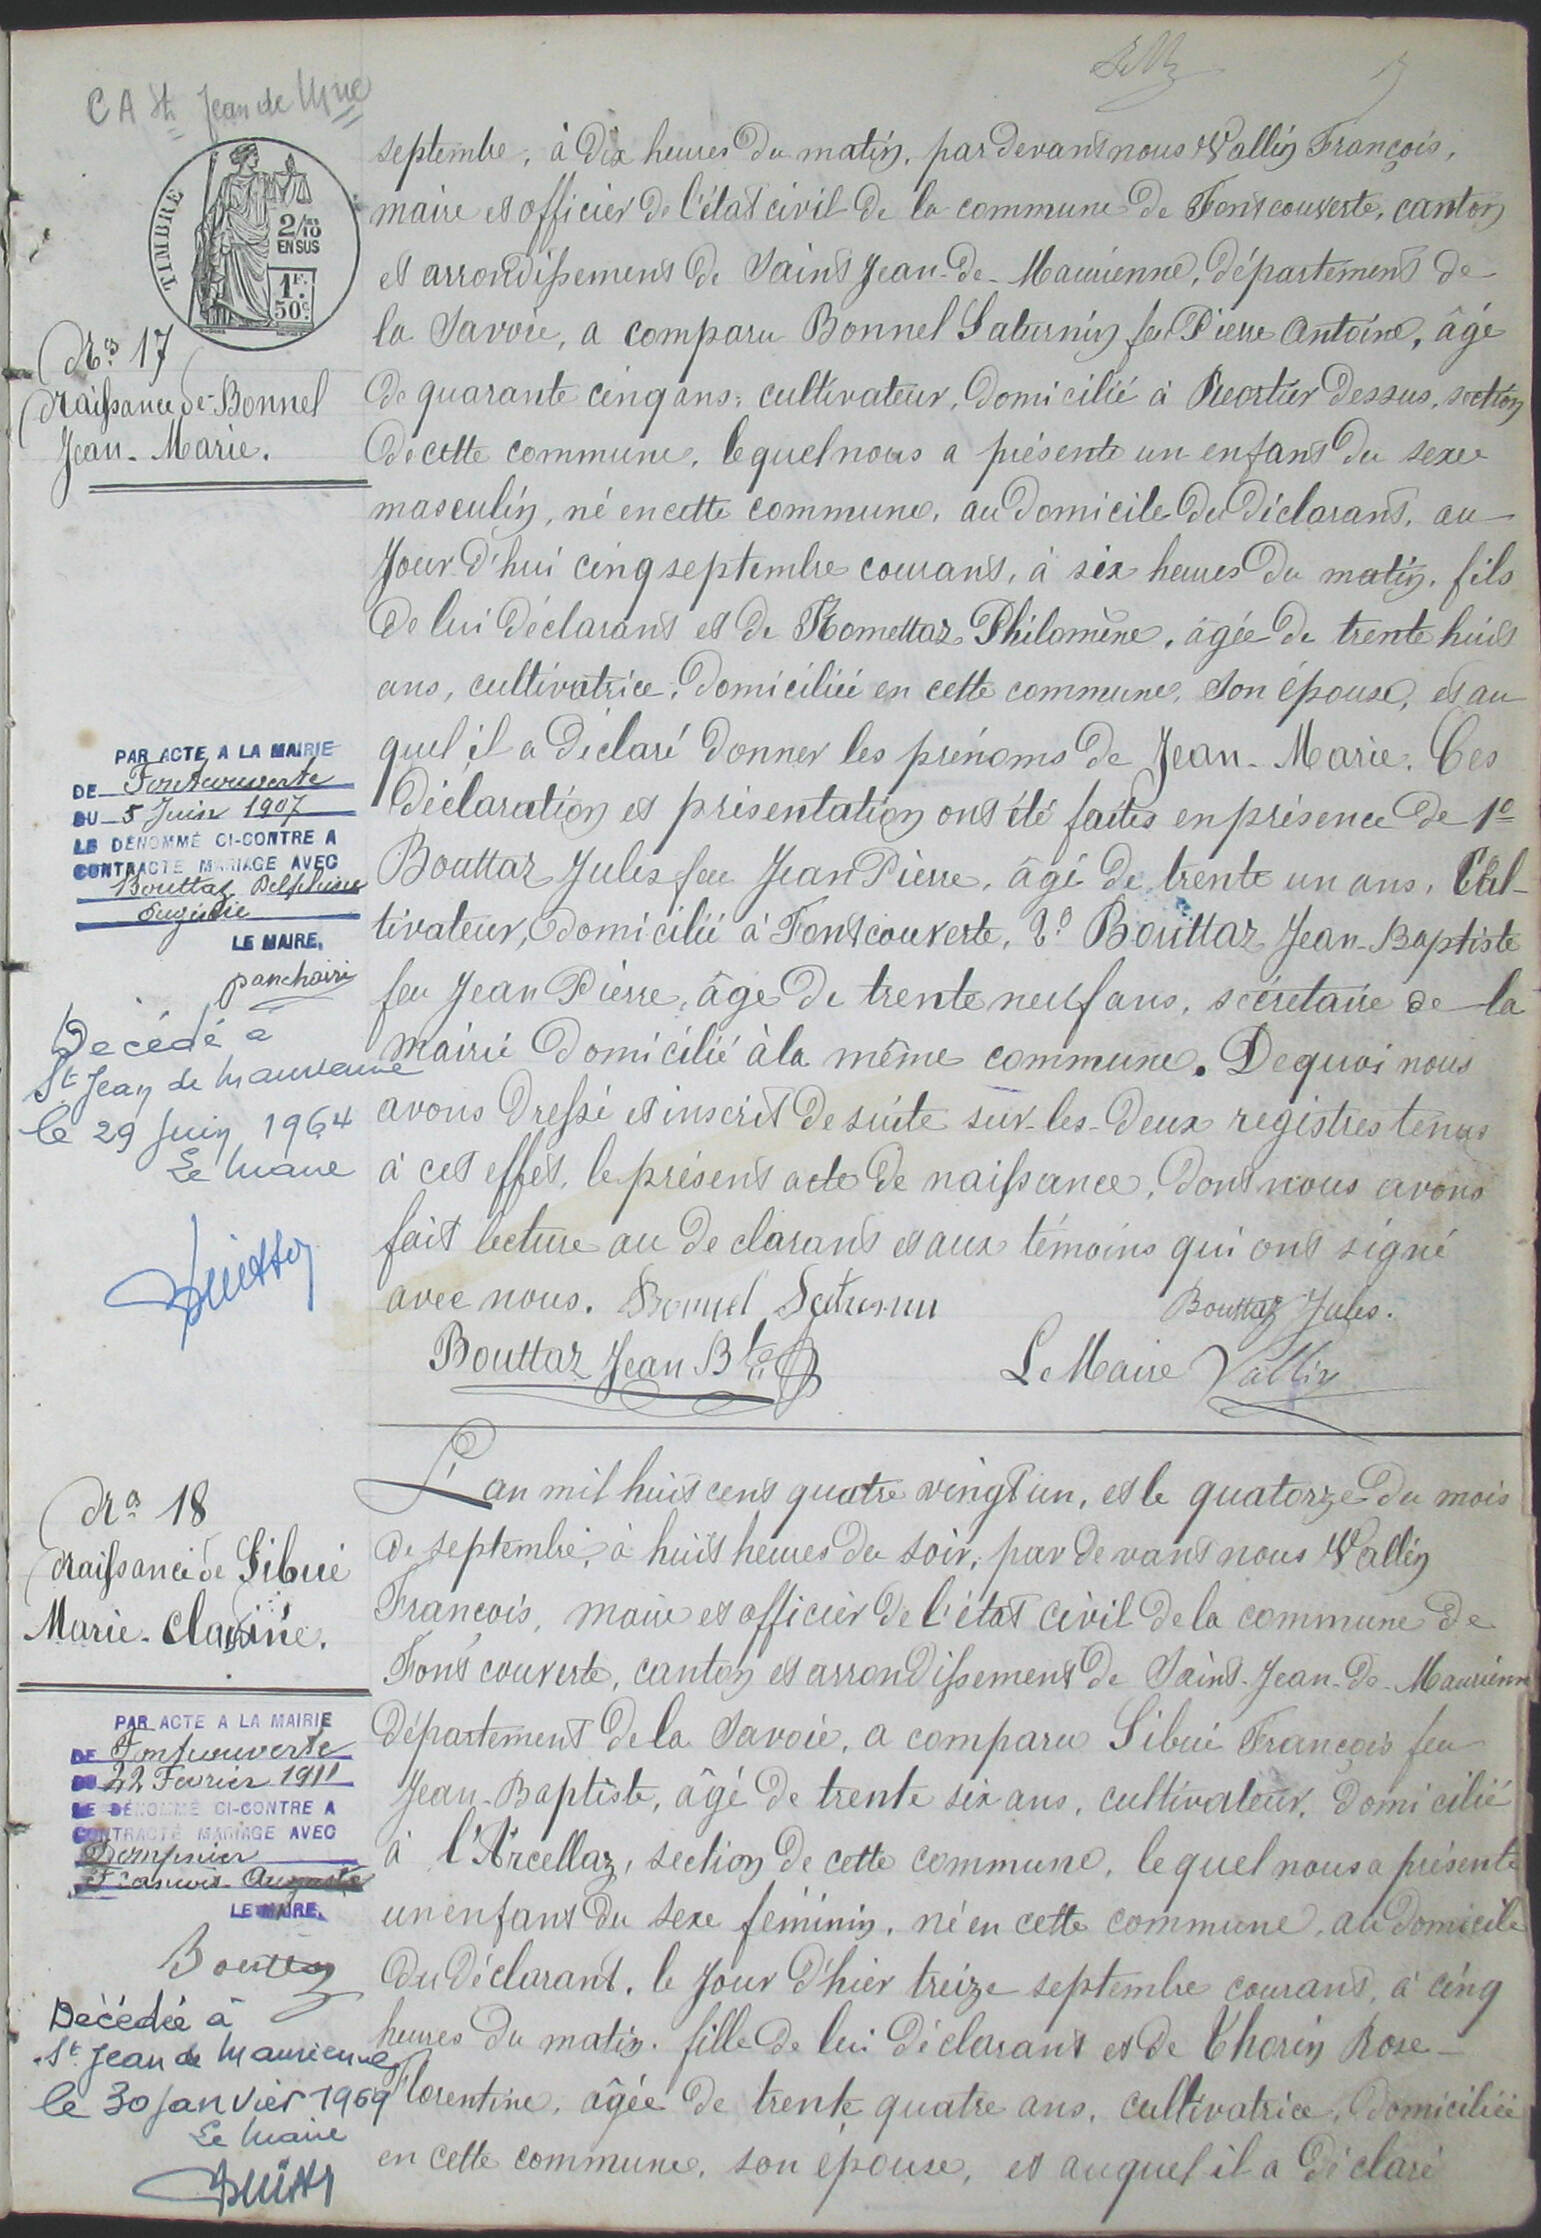 CA St Jean de Mne
TIMBRE
2/10
EN SUS
1F.
50c.
No 17
Naissance de Bonnel
Jean-Marie.
septembre, à dix heures du matin, par devant nous Vallin François,
maire et officier de l'état civil de la commune de Fontcouverte, canton
et arrondissement de Saint Jean-de-Maurienne, département de
la Savoie, a comparu Bonnel Saturnin feu Pierre Antoine, âgé
de quarante cinq ans, cultivateur, domicilié à Rortier dessus, section
de cette commune, lequel nous a présenté un enfant du sexe
masculin, né en cette commune, au domicile du déclarant, au
jour d'hui cinq septembre courant, à six heures du matin, fils
de lui déclarant et de Romettaz Philomène, âgée de trente huit
ans, cultivatrice, domiciliée en cette commune, son épouse, et au
quel il a déclaré donner les prénoms de Jean-Marie. Ces
déclaration et présentation ont été faites en présence de 1o
Bouttaz Jules feu Jean Pierre, âgé de trente un ans, Cul-
tivateur, domicilié à Fontcouverte, 2o Bouttaz Jean-Baptiste
feu Jean Pierre, âgé de trente neuf ans, sécretaire de la
mairie domicilié à la même commune. De quoi nous
avons dressé et inscrit de suite sur les deux registres tenus
à cet effet, le présent acte de naissance, dont nous avons
fait lecture au declarant et aux témoins qui ont signé
avec nous. Bonnel Saturnin Bouttaz Jules.
Bouttaz Jean Bte Le Maire Vallin
PAR ACTE A LA MAIRIE
DE Fontcouverte
DU 5 Juin 1907
LE DÉNOMMÉ CI-CONTRE A
CONTRACTÉ MARIAGE AVEC
Bouttaz Delphine
Eugénie
LE MAIRE,
Décédé à
St Jean de Maurienne
le 29 Juin 1964
Le Maire
No 18
Naissance de Sibué
Marie-Claudine.
L'an mil huit cent quatre vingt un, et le quatorze du mois
de septembre, à huit heures du soir, par devant nous Vallin
François, maire et officier de l'état civil de la commune de
Fontcouverte, canton et arrondissement de Saint-Jean-de-Maurienne
département de la Savoie, a comparu Sibué François feu
Jean-Baptiste, âgé de trente six ans, cultivateur, domicilié
à l'Arcellaz, section de cette commune, lequel nous a présenté
un enfant du sexe féminin, né en cette commune, au domicile
du déclarant, le jour d'hier treize septembre courant, à cinq
heures du matin, fille de lui déclarant et de Thorin Rose-
Florentine, âgée de trente quatre ans, cultivatrice, domiciliée
en cette commune, son épouse, et auquel il a déclaré
PAR ACTE A LA MAIRIE
DE Fontcouverte
DU 22 Fevrier 1911
LE DÉNOMMÉ CI-CONTRE A
CONTRACTÉ MARIAGE AVEC
Dompnier
François Auguste
LE MAIRE,
Bouttaz
Décédée à
St Jean de Maurienne
le 30 janvier 1969
Le Maire